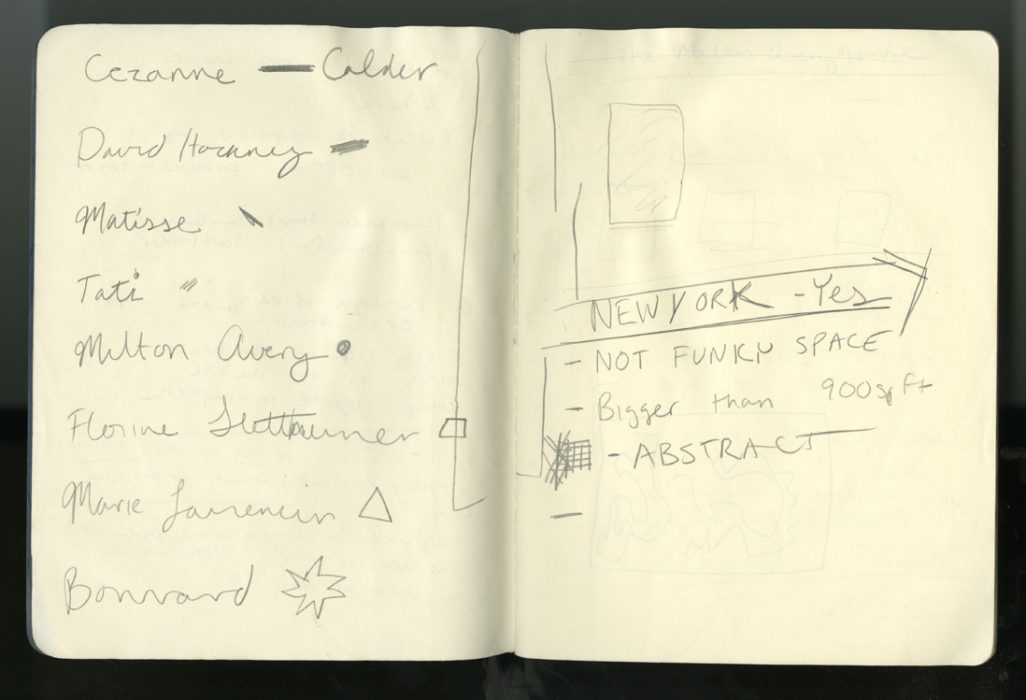 Cezanne — Calder
David Hockney
Matisse
Tati
Milton Avery
Florine Stettheimer
Marie Laurencin
Bonnard
The Milton Avery
NEW YORK - Yes
- NOT FUNKY SPACE
- Bigger than 900 sq Ft
- ABSTRACT
-